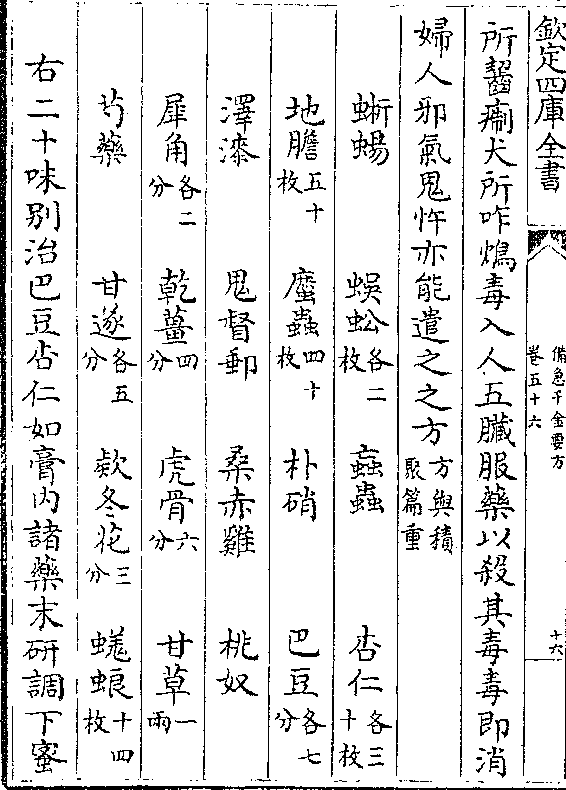 欽定四庫全書 備急千金要方 卷五十六 十六
所齧痸犬所咋鴆毒入人五臟服藥以殺其毒毒即消
婦人邪氣鬼忤亦能遣之之方方與積聚篇重
蜥蜴 蜈蚣各二枚 蝱蟲 杏仁各三十枚
地膽五十枚 䗪蟲四十枚 朴硝 巴豆各七分
澤漆 鬼督郵 桑赤雞 桃奴
犀角各二分 乾薑四分 虎骨六分 甘草一兩
芍藥 甘遂各五分 欵冬花三分 蜣蜋十四枚
右二十味别治巴豆杏仁如膏内諸藥末研調下蜜